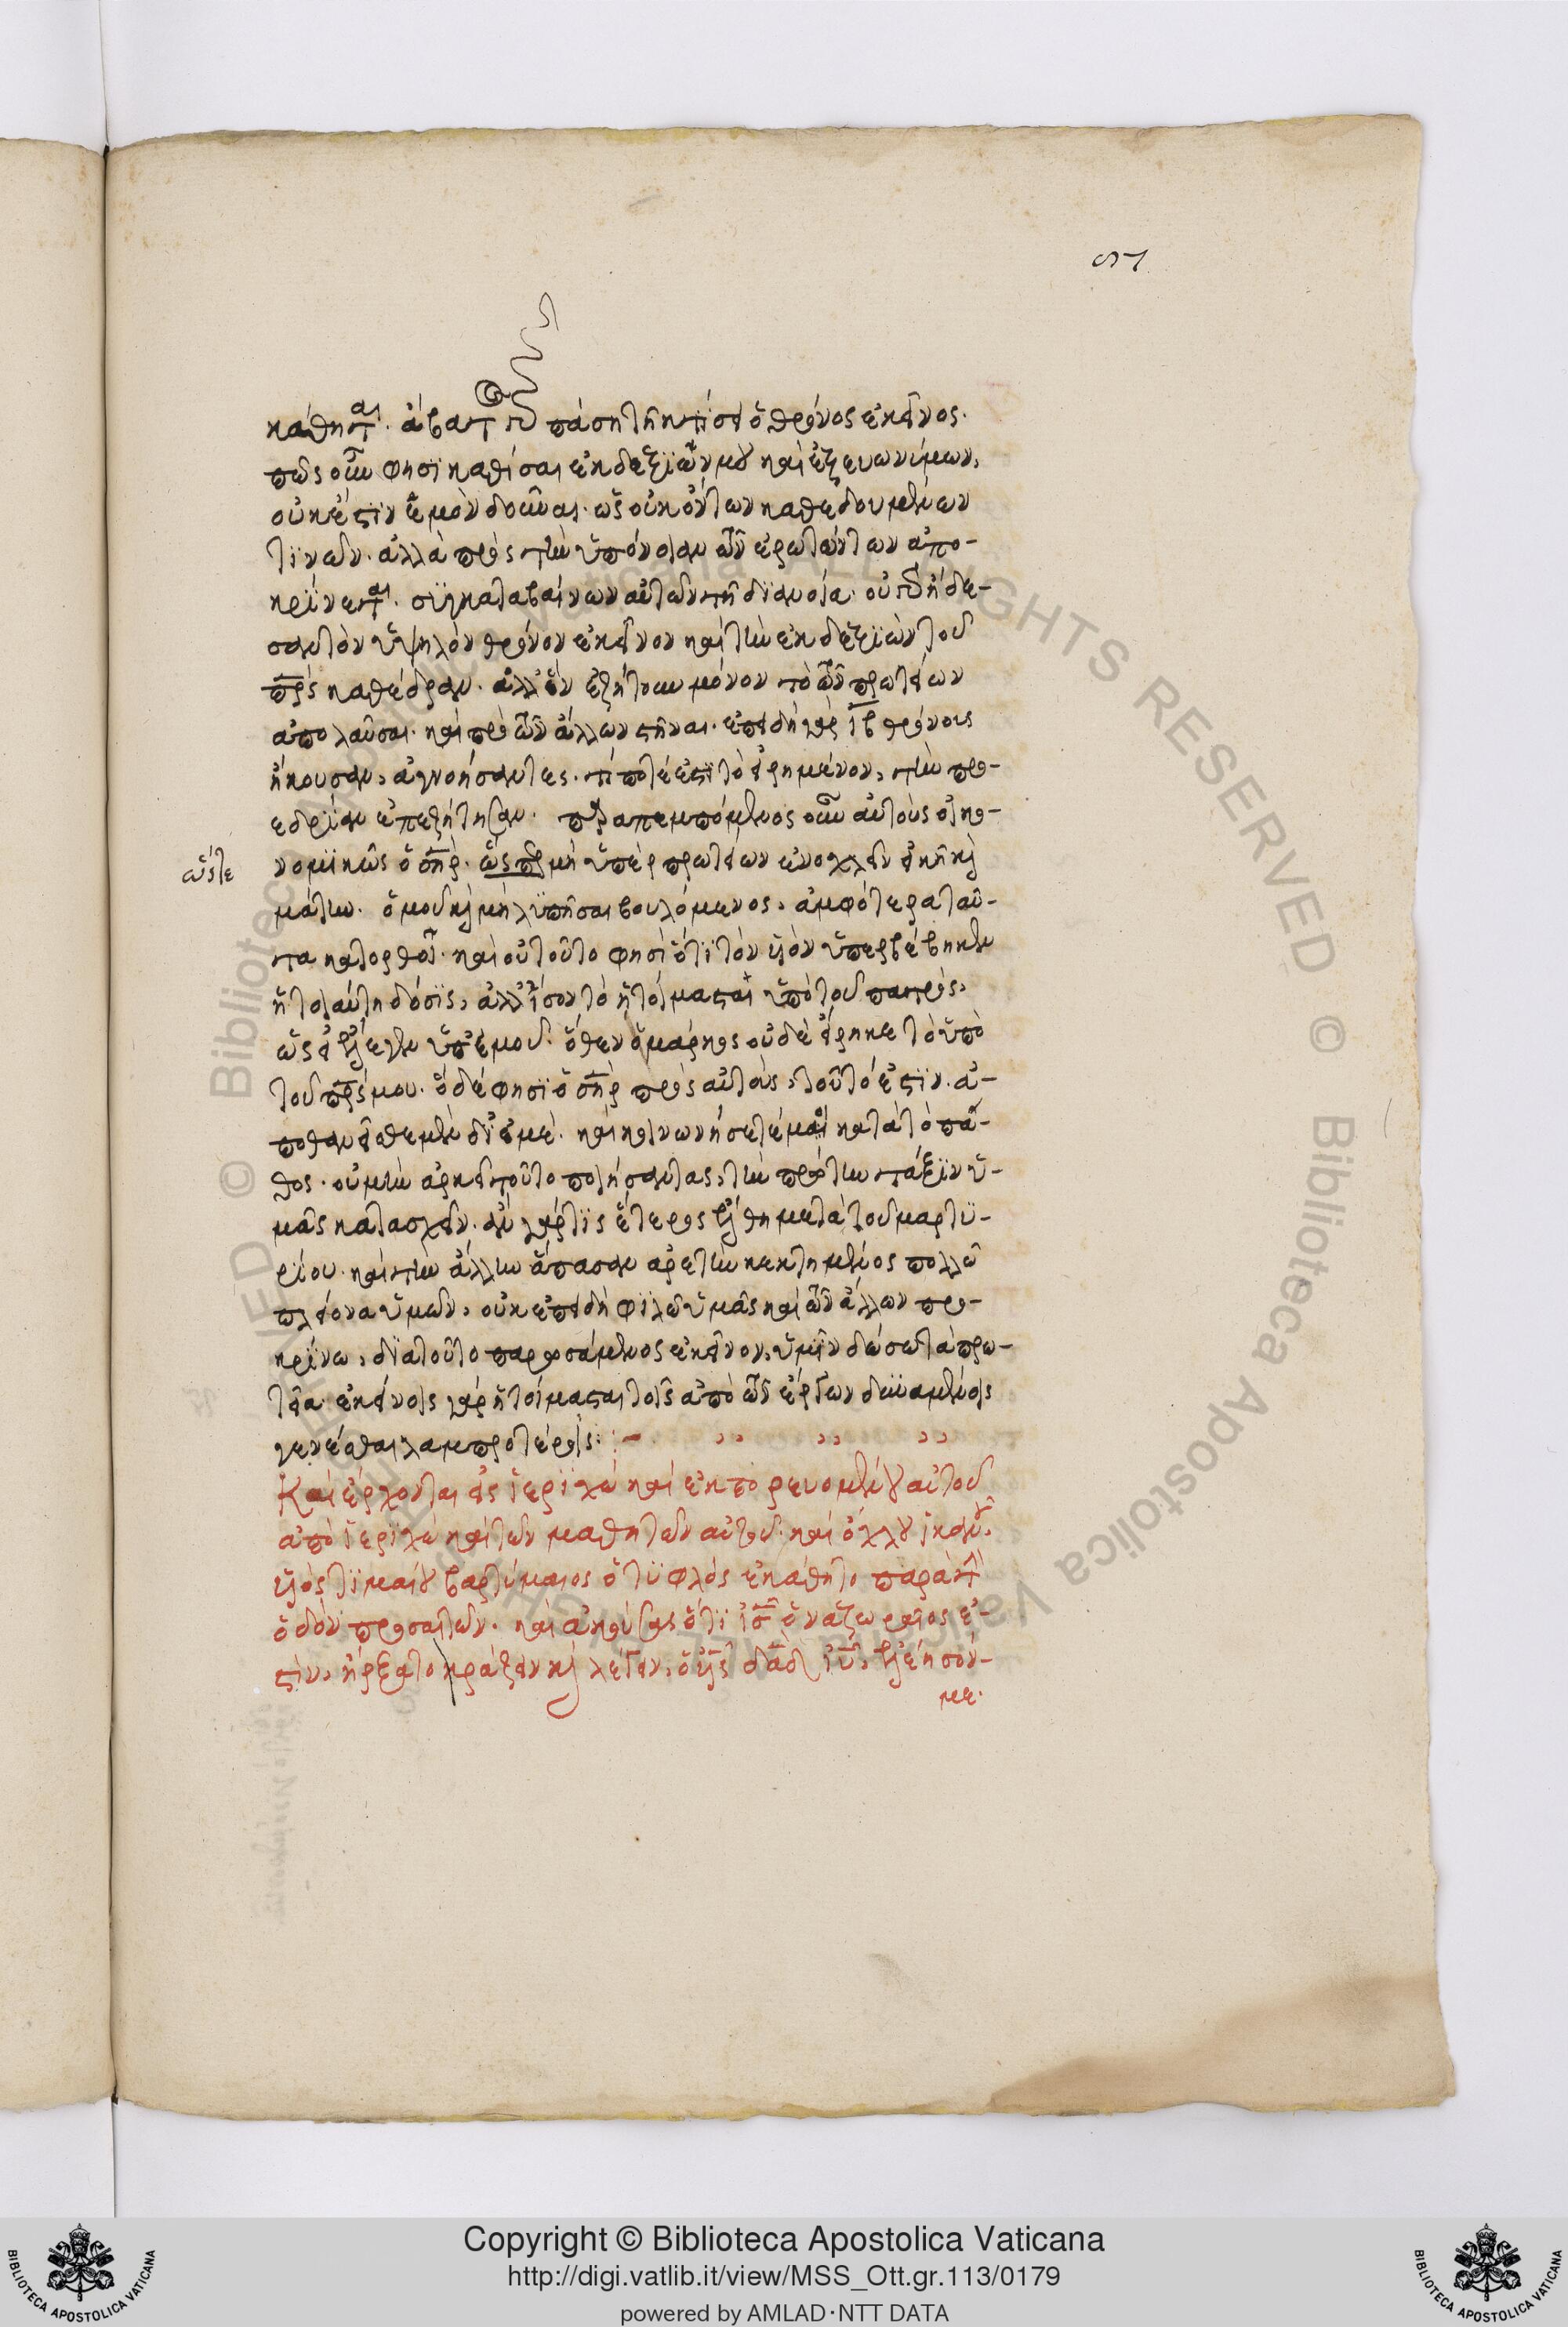 91
κάθηται. ἄβατος γὰρ πάση τῆ κτίσει ὁ θρόνος ἐκεῖνος.
πῶς οὖν φησὶ καθίσαι ἐκ δεξιῶν μου καὶ ἐξ εὐωνύμων,
οὐκ ἔστιν ἐμὸν δοῦναι. ὡς οὐκ ὄντων καθεδουμένων
τινῶν. ἀλλὰ πρὸς τὴν ὑπόνοιαν τῶν ἐρωτώντων ἀπο-
κρίνεται. συγκαταβαίνων αὐτῶν τῆ διανοία. οὐ γὰρ ἤδει-
σαν τὸν ὑψηλὸν θρόνον ἐκεῖνον καὶ τὴν ἐκ δεξιῶν τοῦ
πρς καθέδραν. ἀλλ' ἓν ἐζήτουν μόνον τὸ τῶν πρωτείων
ἀπολαῦσαι. καὶ πρὸ τῶν ἄλλων στῆναι. ἐπειδὴ γὰρ ιβ θρόνους
ἤκουσαν, ἀγνοήσαντες. τί ποτέ ἐστι τὸ εἰρημένον, τὴν προ-
εδρίαν ἐπεζήτησαν. παραπεμπόμενος οὖν αὐτοὺς οἰκο-
νομικῶς ὁ σηρ. ὥς περ μὴ ὑπὲρ πρωτείων ἐνοχλεῖν εἰκῆ καὶ
ὥστε
μάτην. ὁμοῦ καὶ μὴ λυπῆσαι βουλόμενος, ἀμφότερα ταῦ-
τα κατορθοῖ. καὶ οὐ τοῦτο φησὶ ὅτι τὸν υἱὸν ὑπερβέβηκεν
ἡ τοιαύτη δόσις, ἀλλ' ἴσον τὸ ἡτοίμασται ὑπὸ τοῦ πατρός,
ὡς εἰ ἔλεγεν ὑπ' ἐμοῦ. ὅθεν ὁ μάρκος οὐδὲ εἴρηκε τὸ ὑπὸ
τοῦ πρς μου. ὃ δέ φησι ὁ σηρ πρὸς αὐτοὺς, τοῦτό ἐστιν. ἀ-
ποθανεῖσθε μὲν δι' ἐμὲ. καὶ κοινωνήσετέ μοι κατὰ τὸ πά-
θος. οὐ μὴν ἀρκεῖ τοῦτο ποιήσαντας, τὴν πρώτην τάξιν ὑ-
μᾶς κατασχεῖν. ἂν γάρ τις ἕτερος ἔλθη μετὰ τοῦ μαρτυ-
ρίου. καὶ τὴν ἄλλην ἅπασαν ἀρετὴν κεκτημένος πολλῶ
πλείονα ὑμῶν, οὐκ ἐπειδὴ φιλῶ ὑμᾶς καὶ τῶν ἄλλων προ-
κρίνω, διὰ τοῦτο παρωσάμενος ἐκεῖνον, ὑμῖν δώσω τὰ πρω-
τεῖα. ἐκείνοις γὰρ ἡτοίμασται τοῖς ἀπὸ τῶν ἔργων δυναμένοις
γενέσθαι λαμπροτέροις:
Καὶ ἔρχονται εἰς ἱεριχὼ καὶ ἐκπορευομένου αὐτοῦ
ἀπὸ ἱεριχὼ καὶ τῶν μαθητῶν αὐτοῦ. καὶ ὄχλου ἱκανοῦ.
υἱὸς τιμαίου βαρτίμαιος ὁ τυφλὸς ἐκάθητο παρὰ τὴν
ὁδὸν προσαιτῶν. καὶ ἀκούσας ὅτι ις ὁ ναζωραῖος ἐ-
στιν, ἤρξατο κράζειν καὶ λέγειν, ὁ υἱὸς δαδ ιυ, ἐλέησόν-
με.
Copyright © Biblioteca Apostolica Vaticana
http://digi.vatlib.it/view/MSS_Ott.gr.113/0179
powered by AMLAD·NTT DATA